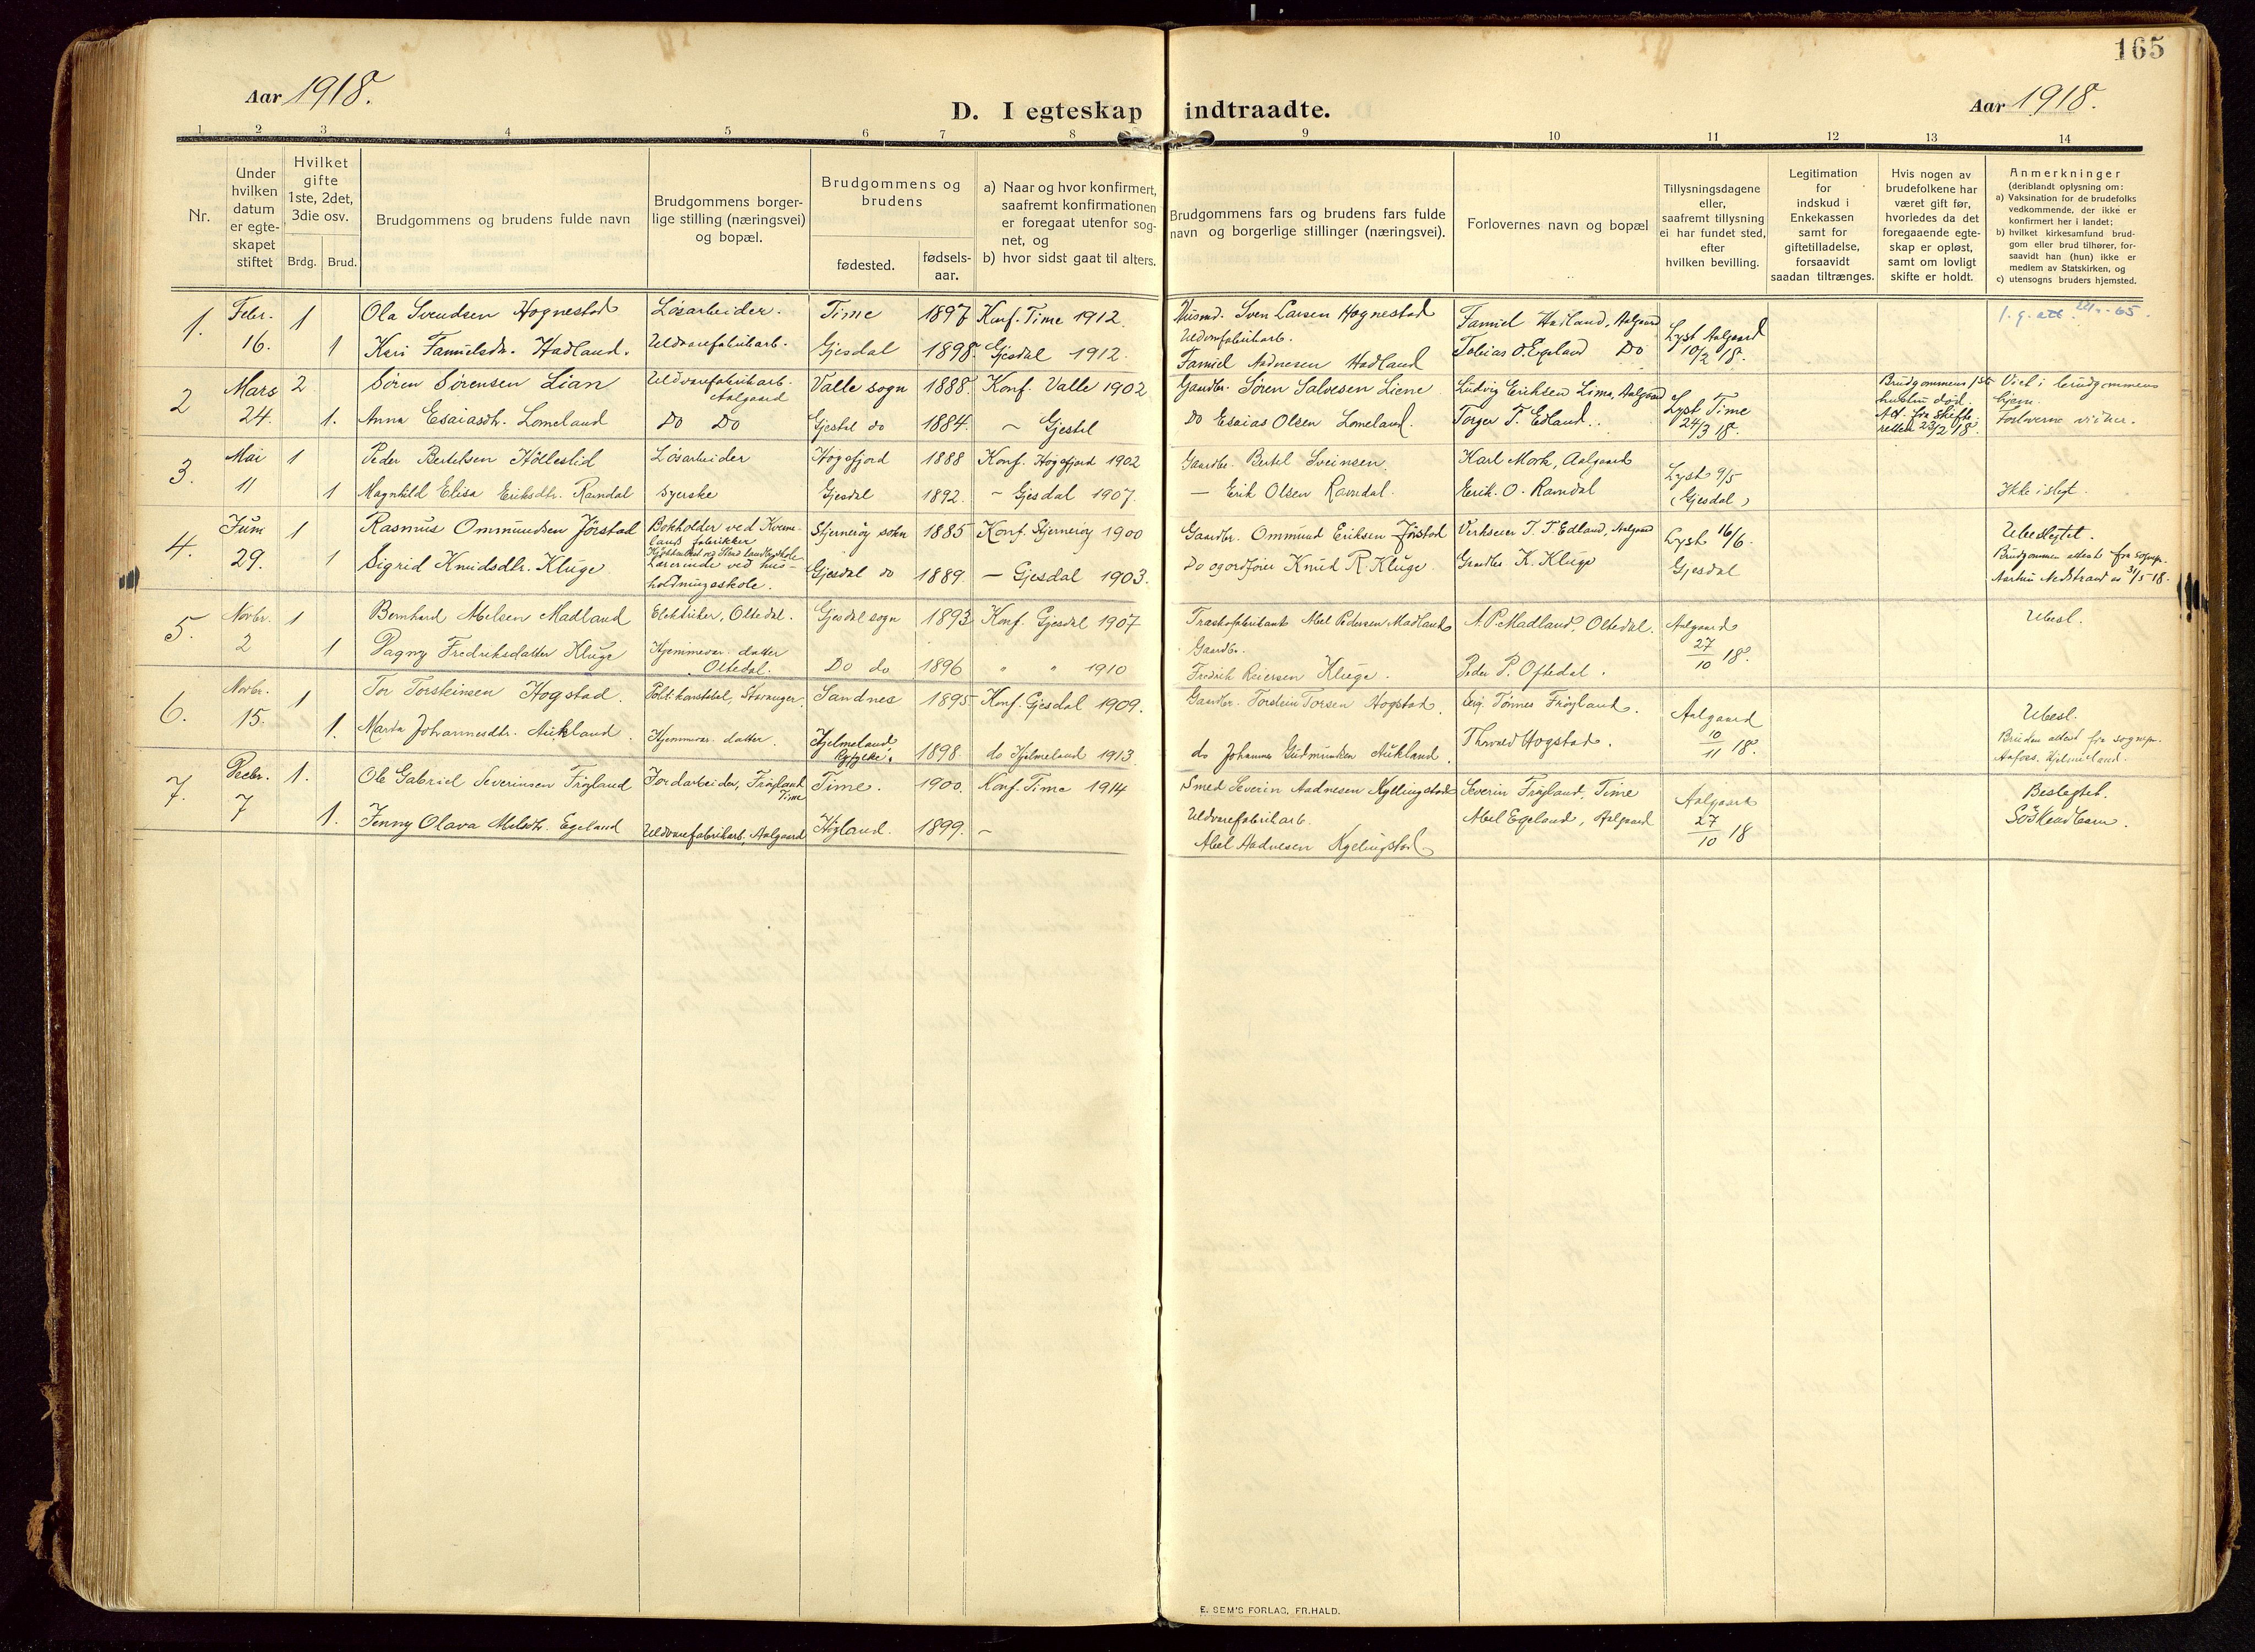 165
Aar 1918.
D. I egteskap indtraadte.
Aar 1918.
1 2 3 4 5 6 7 8 9 10 11 12 13 14
Nr.
Under hvilken datum er egte-skapet stiftet
Hvilket gifte 1ste, 2det, 3die osv.
Brdg. Brud.
Brudgommens og brudens fulde navn
Brudgommens borger-
lige stilling (næringsvei)
og bopæl.
Brudgommens og
brudens
fødested.
fødsels-
aar.
a) Naar og hvor konfirmert,
saafremt konfirmationen
er foregaat utenfor sog-
net, og
b) hvor sidst gaat til alters.
Brudgommens fars og brudens fars fulde
navn og borgerlige stillinger (næringsvei).
Forlovernes navn og bopæl
Tillysningsdagene
eller,
saafremt tillysning
ei har fundet sted,
efter
hvilken bevilling.
Legitimation
for
indskud i
Enkekassen
samt for
giftetilladelse,
forsaavidt
saadan tiltrænges.
Hvis nogen av
brudefolkene har
været gift før,
hvorledes da det
foregaaende egte-
skap er opløst,
samt om lovligt
skifte er holdt.
Anmerkninger
(deriblandt oplysning om:
a) Vaksination for de brudefolks
vedkommende, der ikke er
konfirmert her i landet;
b) hvilket kirkesamfund brud-
gom eller brud tilhører, for-
saavidt han (hun) ikke er
medlem av Statskirken, og
c) utensogns bruders hjemsted.
1. Febr. 1 Ola Svendsen Hognestad Løsarbeider. Time 1897 Konf. Time 1912. Husmd. Sven Larsen Hognestad
16. 1 Kari Tamielsdtr. Hadland. Uldvarefabrikarb. Gjesdal 1898. Gjesdal 1912. Uldvarefabrikarb.
Tamiel Aadnesen Hadland
Tamiel Hadland, Aalgaard
Tobias O. Egeland Do
Lyst Aalgaard
10/2 18.
2 Mars 2 Søren Sørensen Lian Uldvarefabrikarb. Aalgaard Valle sogn 1888. Konf. Valle 1902 Gaardbr. Søren Salvesen Liene Ludvig Eriksen Lima, Aalgaard
24. 1. Anna Esaiasdtr. Lomeland Do Do Gjestal do 1884. ~ Gjestal Do Esaias Olsen Lomeland. Torger T. Edland.
Lyst Time
24/3 18.
Brudgommens 1ste
hustru død.
Att. fra Skifte-
retten 23/2 18.
Viet i brudgommens
hjem.
Forloverne vidner.
3. Mai 1 Peder Bertelsen Hølleslid Løsarbeider Høgsfjord 1888 Konf. Høgsfjord 1902 Gaardbr. Bertel Sveinsen. Karl Mork, Aalgaard
11 1 Magnhild Elisa Eriksdtr. Ramdal Syerske Gjesdal 1892. ~ Gjesdal 1907. — Erik Olsen Ramdal. Erik. O. Ramdal
Lyst 9/5
(Gjesdal)
Ikke i slegt.
4. Juni 1 Rasmus Ommundsen Jørstad Bokholder ved Kverne-
lands fabrikker Stjernerøy sokn 1885 Konf. Stjernerøy 1900 Gaardbr. Ommund Eriksen Jørstad Verkseier T. T. Edland, Aalgaard
29. 1 Sigrid Knudsdtr. Kluge Lærerinde ved hus-
holdningsskole. Gjesdal do 1889. — Gjesdal 1903. Do og ordfører Knud R. Kluge. Gaardbr. K. Kluge
Lyst 16/6.
Gjesdal
Ubeslegtet.
Brudgommen attest fra sognepr.
Nedstrand 31/5 18.
5. Novbr. 1 Bernhard Abelsen Madland Elektriker, Oltedal. Gjesdal sogn 1893 Konf. Gjesdal 1907 Traskofabrikant Abel Pedersen Madland A. P. Madland, Oltedal.
2 1 Dagny Fredriksdatter Kluge Hjemmevær. datter
Oltedal. Do do 1896 " " 1910 Gaardbr.
Fredrik Reiersen Kluge. Peder P. Oftedal.
Aalgaard
27/10 18.
Ubesl.
6. Novbr. 1 Tor Torsteinsen Hogstad. Politikonstabel, Stavanger. Sandnes 1895. Konf. Gjesdal 1909. Gaardbr. Torstein Torsen Hogstad. Tønnes Frøyland.
15. 1. Marta Johannesdtr. Aukland. Hjemmevær. datter. Hjelmeland
Ryfylke. 1898. do Hjelmeland 1913 do Johannes Gudmundsen Aukland. Thorvald Hogstad.
Aalgaard
10/11 18.
Ubesl.
Bruden attest fra sognepr.
Hjelmeland.
7. Decbr. 1. Ole Gabriel Severinsen Frøyland Jordarbeider, Frøyland
Time Time. 1900. Konf. Time 1914 Smed Severin Aadnesen Kyllingstad Severin Frøyland, Time
7 1. Jenny Olava Abelsdtr. Egeland Uldvarefabrikarb, Aalgaard Høyland. 1899. ~ Uldvarefabrikarb.
Abel Aadnesen Kyllingstad Abel Egeland, Aalgaard
Aalgaard
27/10 18
Beslegtet.
Søskendbarn.
E. SEM'S FORLAG, FR.HALD.